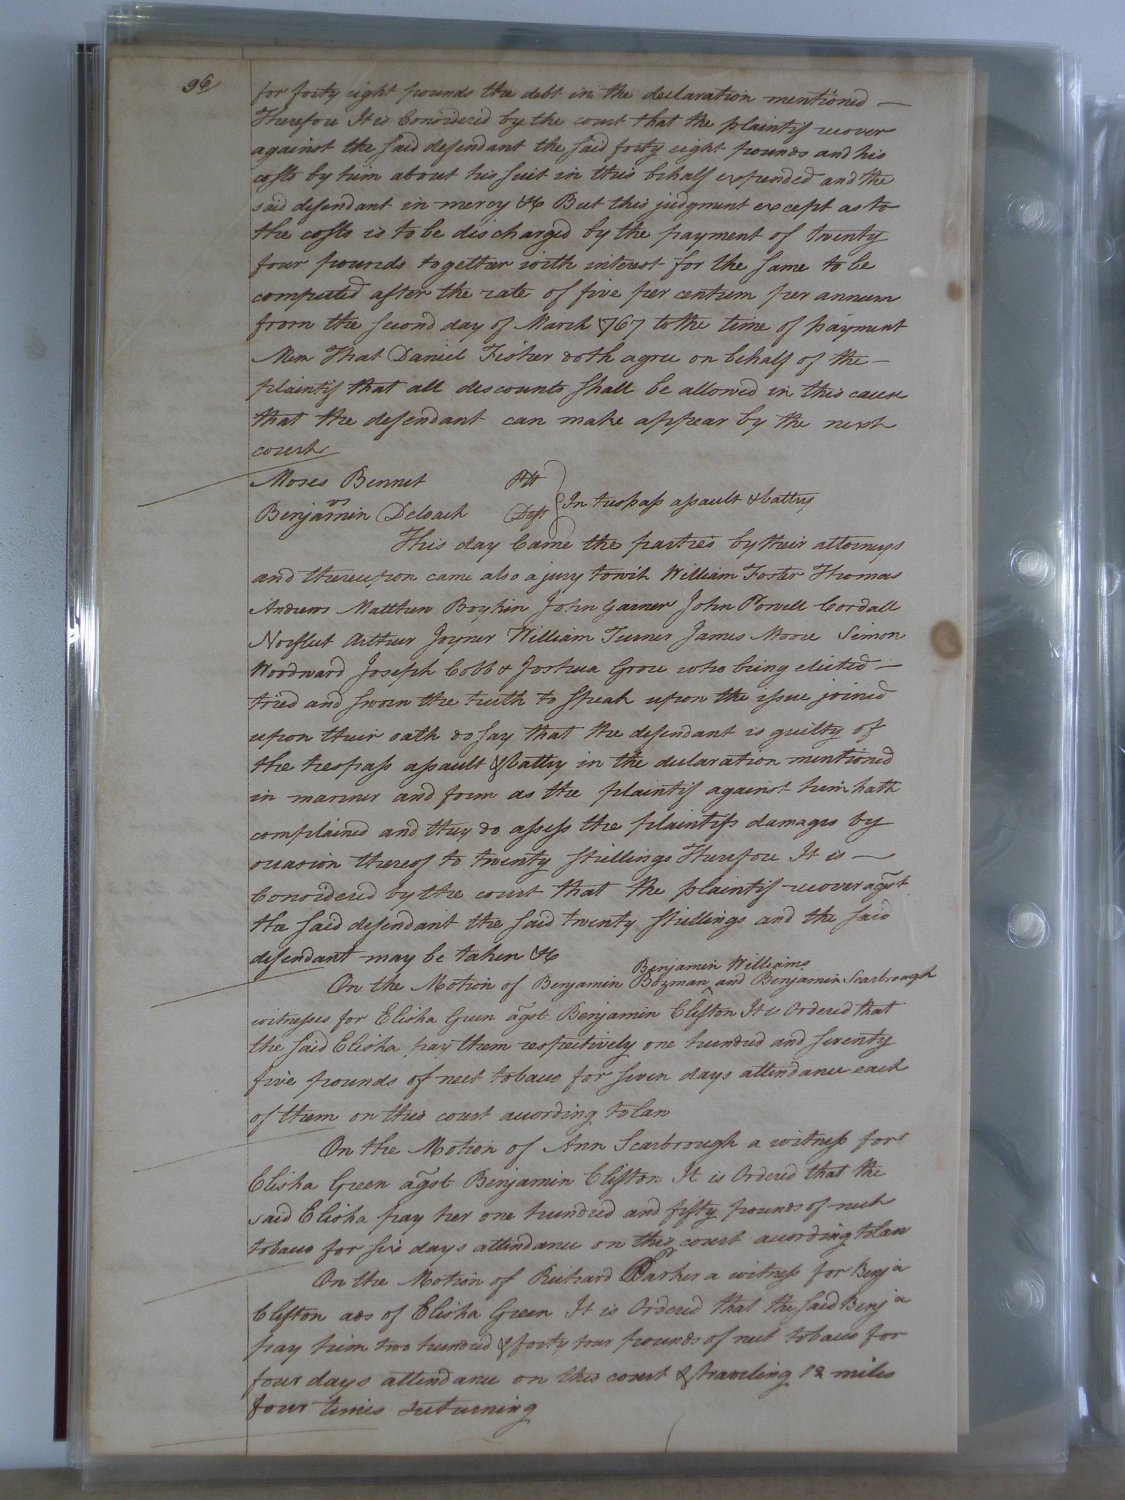 96
for forty eight pounds the debt in the declaration mentioned —
Therefore It is Considered by the court that the plaintif recover
against the said defendant the said forty eight pounds and his
costs by him about his suit in this behalf expended and the
said defendant in mercy &c But this judgment except as to
the costs is to be discharged by the payment of twenty
four pounds together with interest for the same to be
computed after the rate of five per centum per annum
from the second day of March 1767 to the time of payment
Mem That Daniel Fisher doth agree on behalf of the —
plaintif that all discounts shall be allowed in this cause
that the defendant can make appear by the next
court
Moses Bennet Plt
vs
Benjamin Deloach Deft } In trespass assault & battry
This day Came the parties by their attorneys
and thereupon came also a jury towit William Foster Thomas
Andrews Matthew Boykin John Garner John Powell Cordall
Norfleet Arthur Joyner William Turner James Moore Simon
Woodward Joseph Cobb & Joshua Grove who being elected —
tried and sworn the truth to speak upon the issue joined
upon their oath do say that the defendant is guilty of
the trespass assault & battry in the declaration mentioned
in manner and form as the plaintif against him hath
complained and they do assess the plaintifs damages by
occasion thereof to twenty shillings Therefore It is —
Considered by the court that the plaintif recover agst
the said defendant the said twenty shillings and the said
defendant may be taken &c
Benjamin Williams
On the Motion of Benjamin Bozman and Benjamin Scarbrough
witnesses for Elisha Green agst Benjamin Clifton It is Ordered that
the said Elisha pay them respectively one hundred and seventy
five pounds of neet tobacco for seven days attendance each
of them on this court according to law
On the Motion of Ann Scarbrough a witness for
Elisha Green agst Benjamin Clifton It is Ordered that the
said Elisha pay her one hundred and fifty pounds of neet
tobacco for six days attendance on this court according to law
On the Motion of Richard Parker a witness for Benja
Clifton ads of Elisha Green It is Ordered that the said Benja
pay him two hundred & forty four pounds of neet tobacco for
four days attendance on this court & traveling 12 miles
four times returning